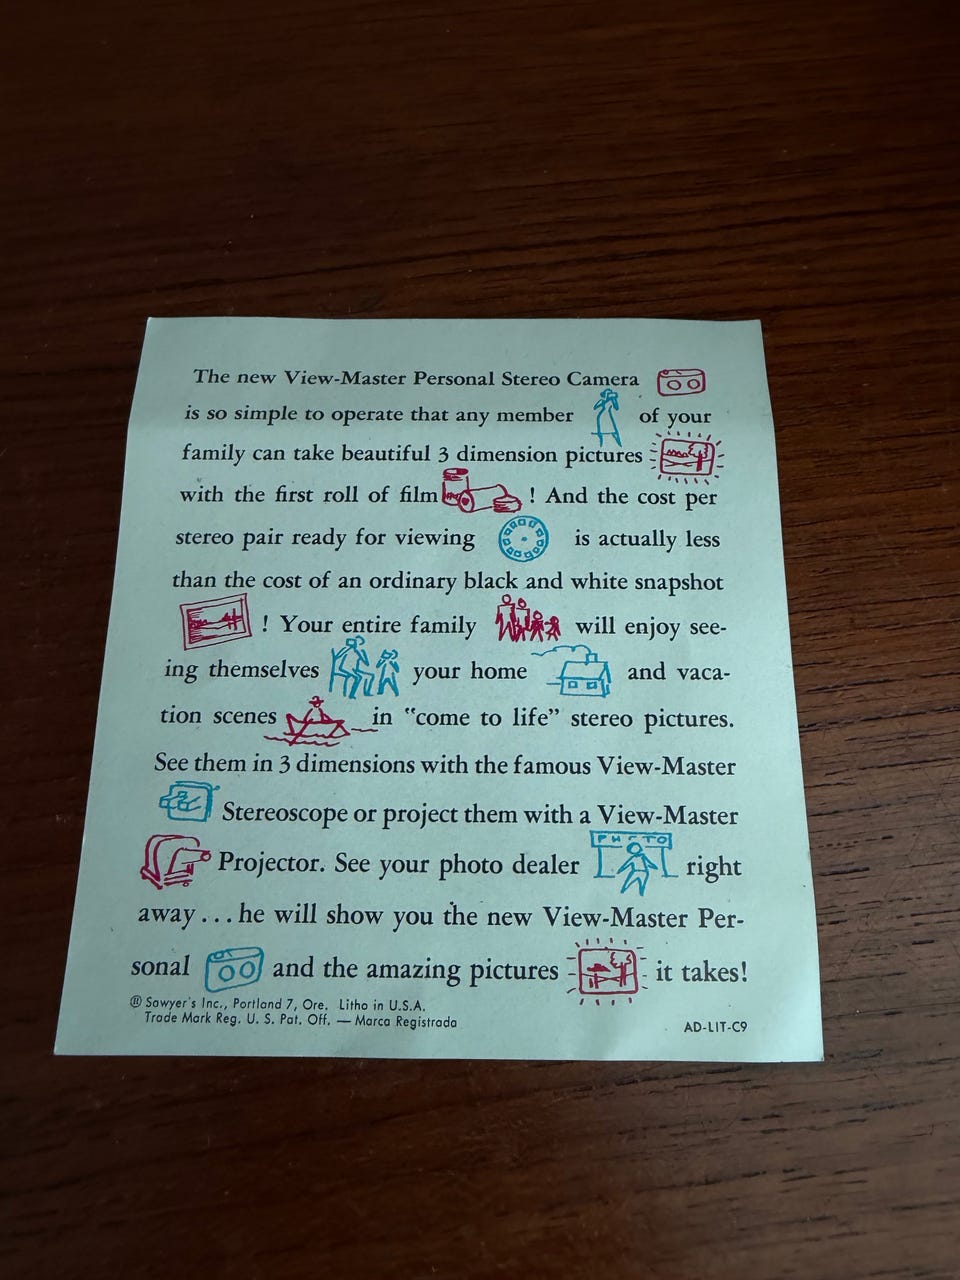 The new View-Master Personal Stereo Camera
is so simple to operate that any member of your
family can take beautiful 3 dimension pictures
with the first roll of film ! And the cost per
stereo pair ready for viewing is actually less
than the cost of an ordinary black and white snapshot
! Your entire family will enjoy see-
ing themselves your home and vaca-
tion scenes in “come to life” stereo pictures.
See them in 3 dimensions with the famous View-Master
Stereoscope or project them with a View-Master
PHOTO
Projector. See your photo dealer right
away... he will show you the new View-Master Per-
sonal and the amazing pictures it takes!
® Sawyer's Inc., Portland 7, Ore. Litho in U.S.A.
Trade Mark Reg. U. S. Pat. Off. — Marca Registrada
AD-LIT-C9